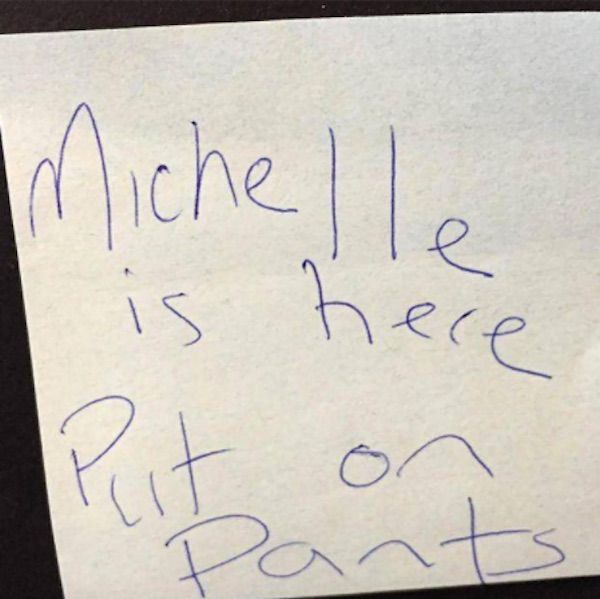 Michelle
is here
Put on
Pants